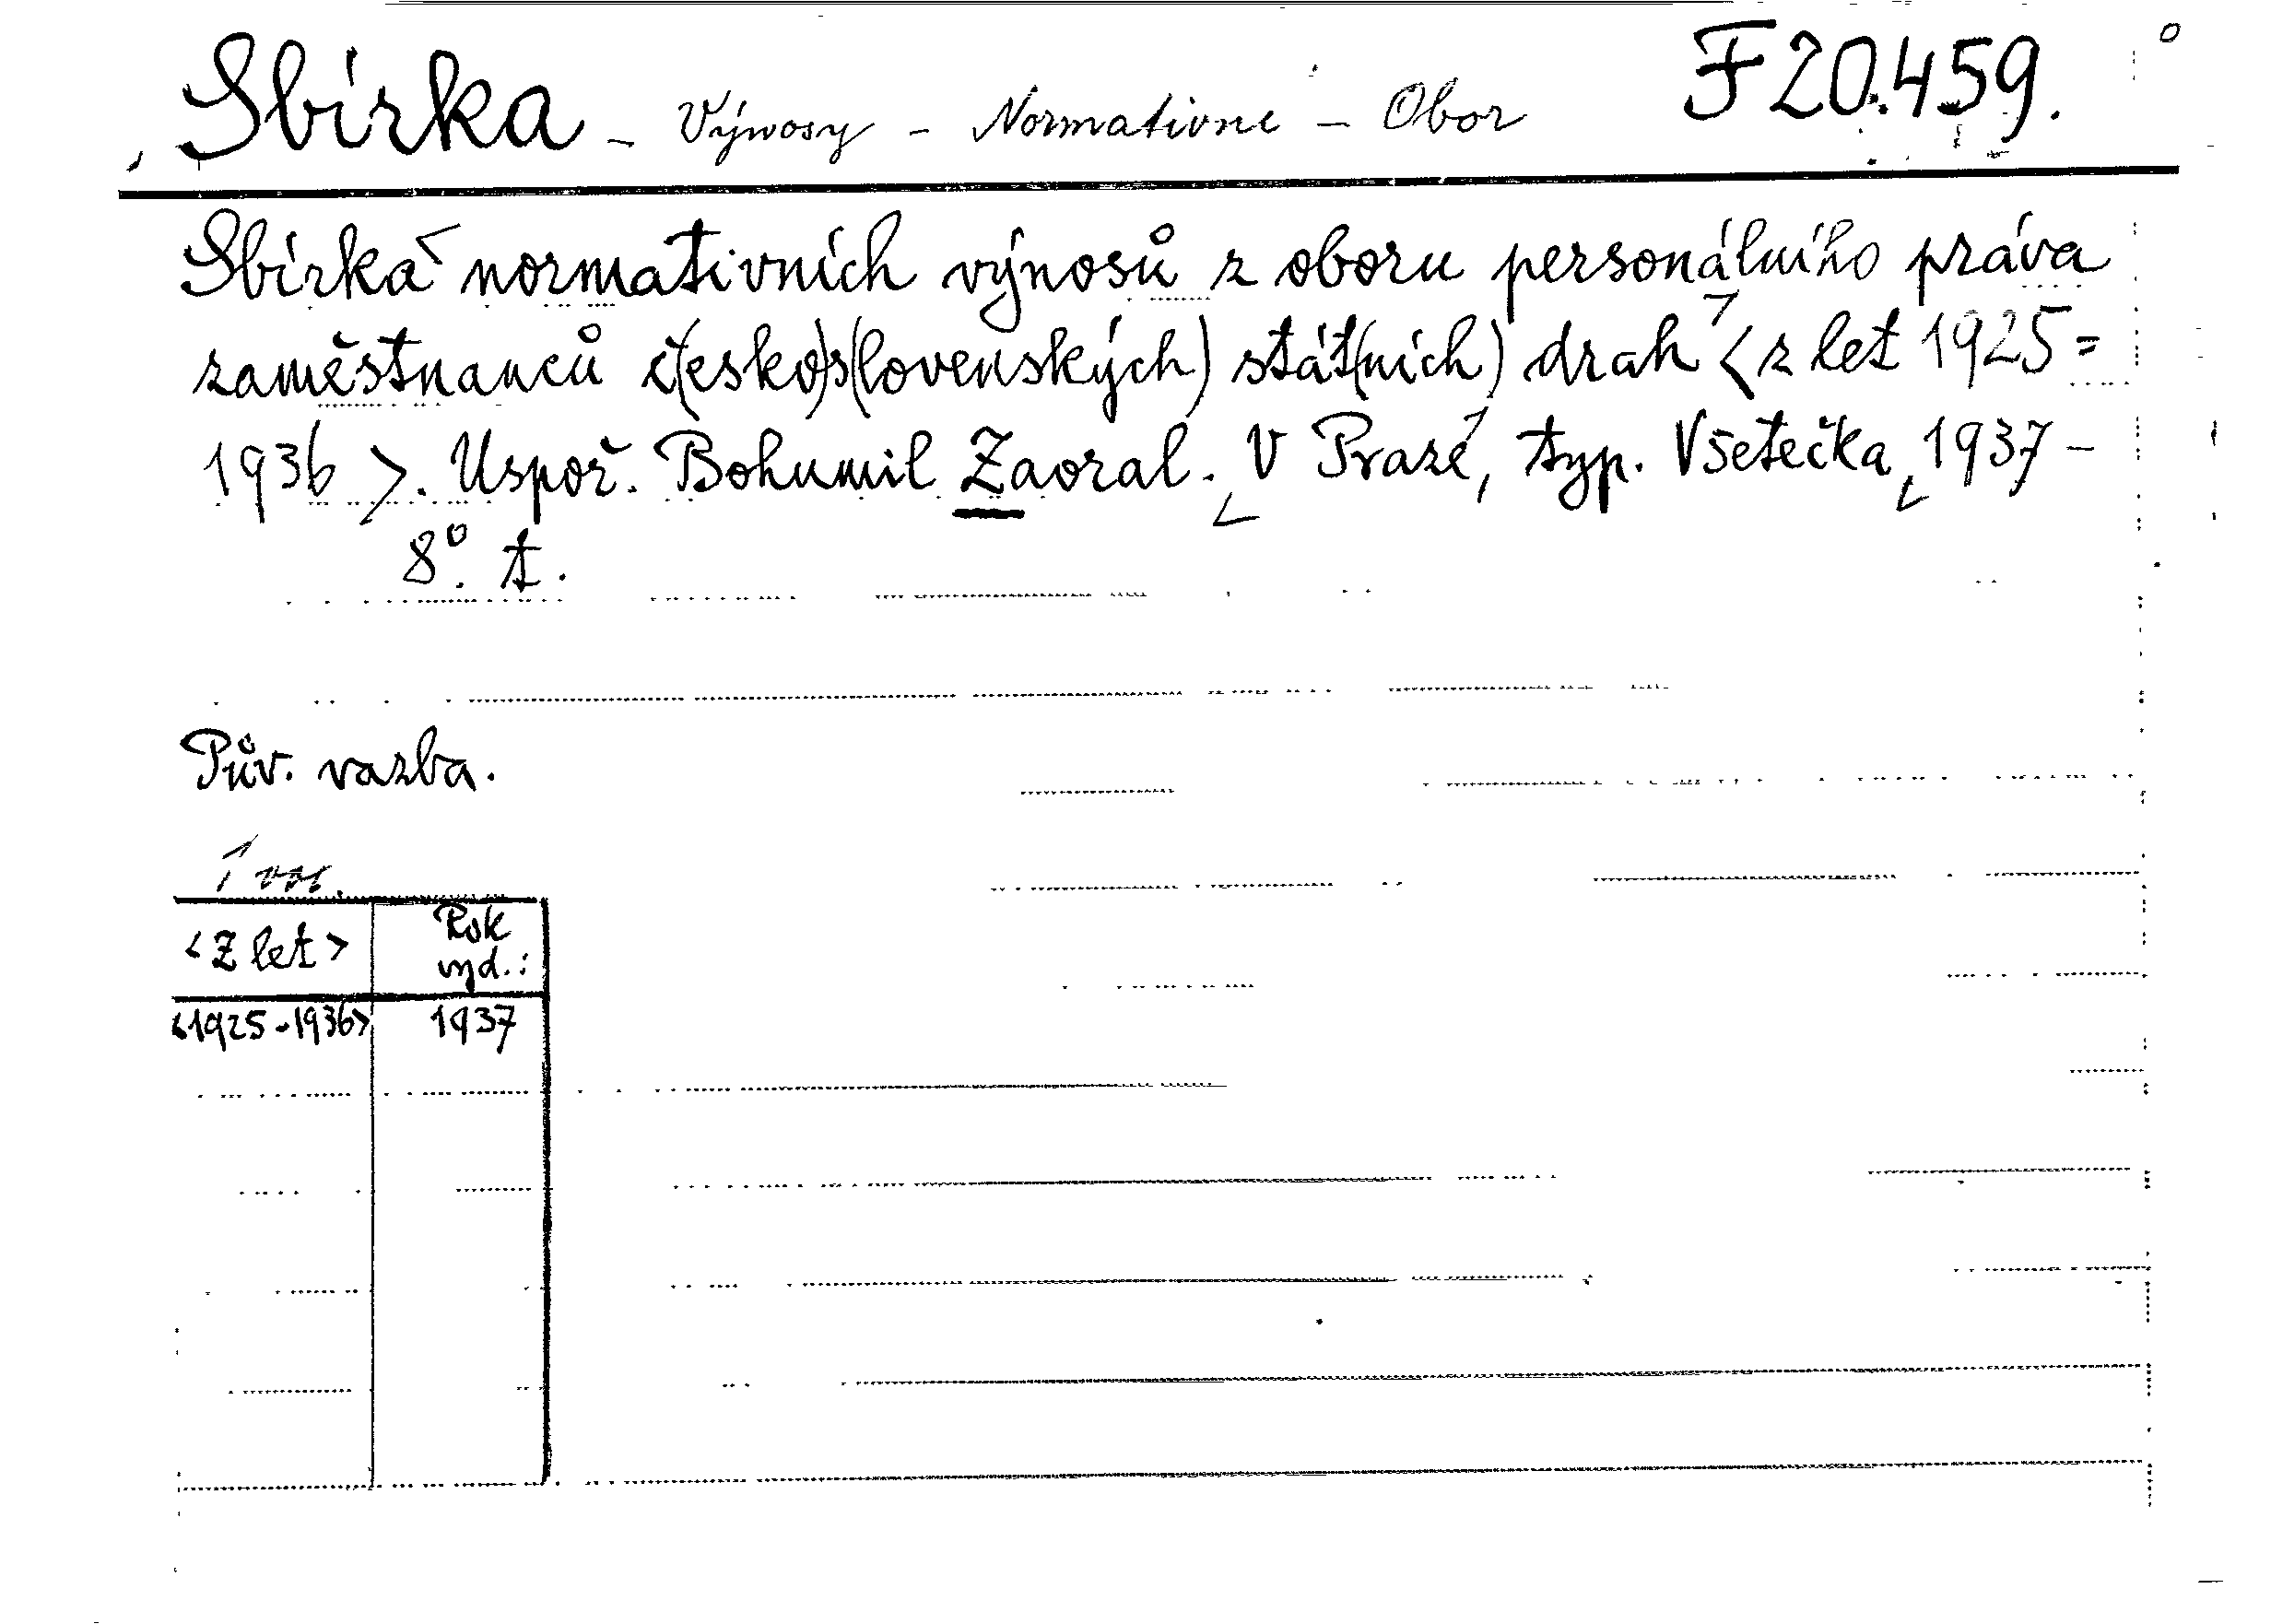 Sbírka – Výnosy – Normativní – Obor F 20.459.
Sbírka normativních výnosů z oboru personálního práva
zaměstnanců č(esko)s(lovenských) stát(ních) drah <z let 1925=
1936>. Uspoř. Bohumil Zaoral. V Praze, typ. Všetečka, 1937 –
8°. t.
Pův. vazba.
<Z let> Rok
vyd.:
<1925-1936> 1937